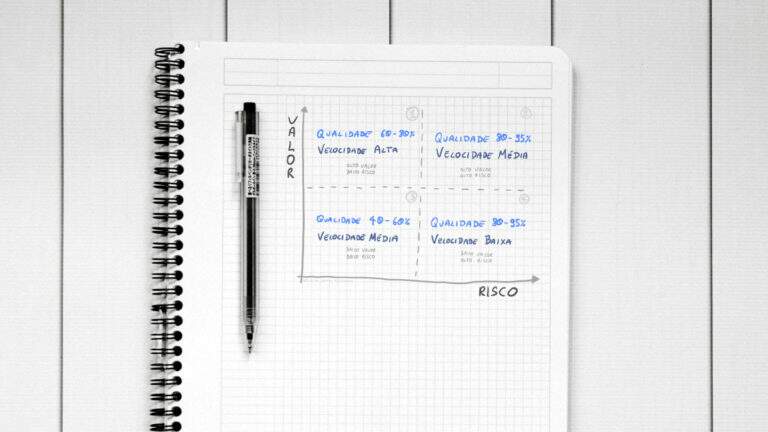 VALOR
①
QUALIDADE 60-80%
VELOCIDADE ALTA
ALTO VALOR
BAIXO RISCO
②
QUALIDADE 80-95%
VELOCIDADE MÉDIA
ALTO VALOR
ALTO RISCO
③
QUALIDADE 40-60%
VELOCIDADE MÉDIA
BAIXO VALOR
BAIXO RISCO
QUALIDADE 80-95%
VELOCIDADE BAIXA
BAIXO VALOR
ALTO RISCO
RISCO